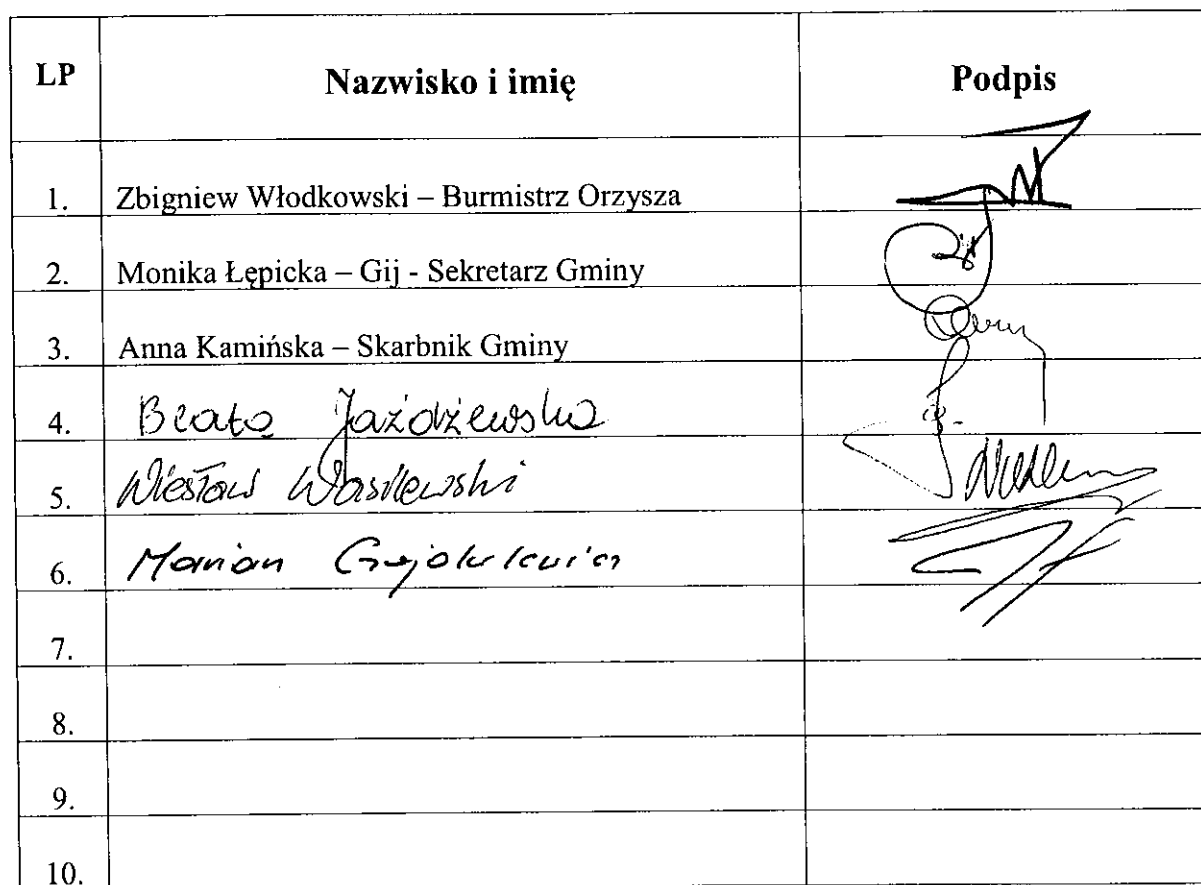 LP Nazwisko i imię Podpis
1. Zbigniew Włodkowski – Burmistrz Orzysza
2. Monika Łępicka – Gij - Sekretarz Gminy
3. Anna Kamińska – Skarbnik Gminy
4. Beata Jażdżewska
5. Wiesław Wasilewski
6. Marian
7.
8.
9.
10.